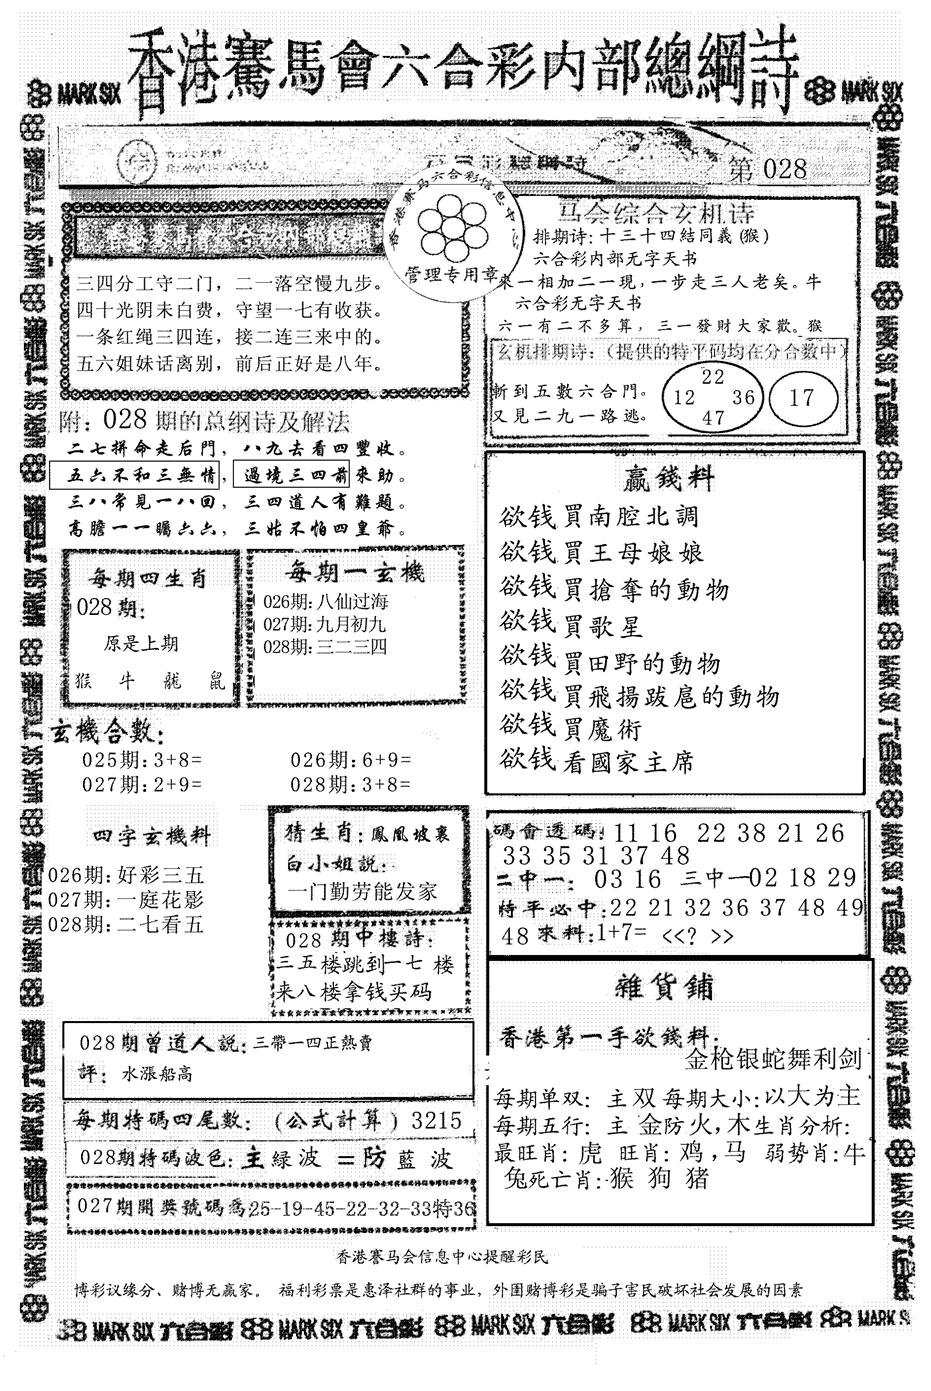 香港賽馬會六合彩内部總綱詩
MARK SIX
MARK SIX
第 028
香港赛马六合彩信息中心
管理专用章
三四分工守二门，二一落空慢九步。
四十光阴未白费，守望一七有收获。
一条红绳三四连，接二连三来中的。
五六姐妹话离别，前后正好是八年。
马会综合玄机诗
排期诗:十三十四結同義(猴)
六合彩内部无字天书
來一相加二一現,一步走三人老矣。牛
六合彩无字天书
六一有二不多算，三一發財大家歡。猴
玄机排期诗:（提供的特平码均在分合数中）
斬到五數六合門。
又見二九一路逃。
22
12 36
47
17
附: 028 期的总纲诗及解法
二七拼命走后門，八九去看四豐收。
五六不和三無情，過境三四前來助。
三八常見一八回，三四道人有難題。
高膽一一矚六六，三姑不怕四皇爺。
每期四生肖
028期:
原是上期
猴 牛 龍 鼠
每期一玄機
026期:八仙过海
027期:九月初九
028期:三二三四
玄機合數:
025期:3+8= 026期:6+9=
027期:2+9= 028期:3+8=
贏錢料
欲钱買南腔北調
欲钱買王母娘娘
欲钱買搶奪的動物
欲钱買歌星
欲钱買田野的動物
欲钱買飛揚跋扈的動物
欲钱買魔術
欲钱看國家主席
四字玄機料
026期:好彩三五
027期:一庭花影
028期:二七看五
猜生肖:鳳凰坡裏
白小姐説:
一门勤劳能发家
028 期中樓詩:
三五楼跳到一七 楼
来八楼拿钱买码
碼會透碼: 11 16 22 38 21 26
33 35 31 37 48
二中一: 03 16 三中一02 18 29
特平必中:22 21 32 36 37 48 49
48 來料:1+7= <<? >>
雜貨鋪
香港第一手欲錢料:
金枪银蛇舞利剑
每期单双: 主 双 每期大小:以大为主
每期五行: 主 金防 火,木生肖分析:
最旺肖: 虎 旺肖: 鸡 ,马 弱势肖:牛
兔死亡肖: 猴 狗 猪
028期曾道人説:三帶一四正熱賣
評: 水漲船高
每期特碼四尾數: (公式計算) 3215
028期特碼波色:主綠波 =防 藍 波
027期開獎號碼為:25-19-45-22-32-33特36
香港賽马会信息中心提醒彩民
博彩议缘分、赌博无赢家。 福利彩票是惠泽社群的事业，外围赌博彩是骗子害民破坏社会发展的因素
MARK SIX 六合彩 MARK SIX 六合彩 MARK SIX 六合彩 MARK SIX 六合彩 MARK SIX